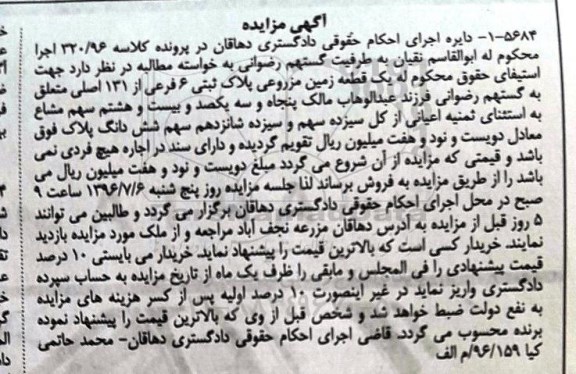 آگهی مزایده
۱-۵۶۸۴- دایره اجرای احکام حقوقی دادگستری دهاقان در پرونده کلاسه ۳۲۰/۹۶ اجرا
محکوم له ابوالقاسم نقیان به طرفیت گستهم رضوانی به خواسته مطالبه در نظر دارد جهت
استیفای حقوق محکوم له یک قطعه زمین مزروعی پلاک ثبتی ۶ فرعی از ۱۳۱ اصلی متعلق
به گستهم رضوانی فرزند عبدالوهاب مالک پنجاه و سه یکصد و بیست و هشتم سهم مشاع
به استثنای ثمنیه اعیانی از کل سیزده سهم و سیزده شانزدهم سهم شش دانگ پلاک فوق
معادل دویست و نود و هفت میلیون ریال تقویم گردیده و دارای سند در اجاره هیچ فردی نمی
باشد و قیمتی که مزایده از آن شروع می گردد مبلغ دویست و نود و هفت میلیون ریال می
باشد را از طریق مزایده به فروش برساند لذا جلسه مزایده روز پنج شنبه ۱۳۹۶/۷/۶ ساعت ۹
صبح در محل اجرای احکام حقوقی دادگستری دهاقان برگزار می گردد و طالبین می توانند
۵ روز قبل از مزایده به آدرس دهاقان مزرعه نجف آباد مراجعه و از ملک مورد مزایده بازدید
نمایند. خریدار کسی است که بالاترین قیمت را پیشنهاد نماید. خریدار می بایستی ۱۰ درصد
قیمت پیشنهادی را فی المجلس و مابقی را ظرف یک ماه از تاریخ مزایده به حساب سپرده
دادگستری واریز نماید در غیر اینصورت ۱۰ درصد اولیه پس از کسر هزینه های مزایده
به نفع دولت ضبط خواهد شد و شخص قبل از وی که بالاترین قیمت را پیشنهاد نموده
برنده محسوب می گردد. قاضی اجرای احکام حقوقی دادگستری دهاقان- محمد حاتمی
کیا ۹۶/۱۵۹/م الف